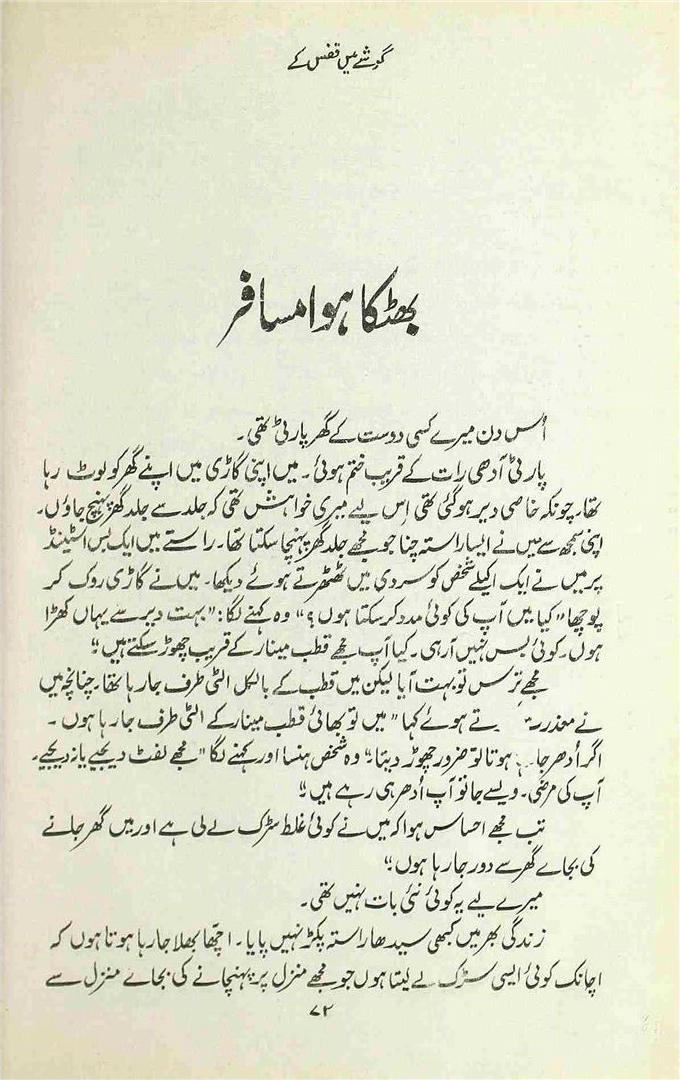 گوشے میں قفس کے
بھٹکا ہوا مسافر
اُس دن میرے کسی دوست کے گھر پارٹی تھی۔
پارٹی آدھی رات کے قریب ختم ہوئی۔ میں اپنی گاڑی میں اپنے گھر کو لوٹ رہا
تھا۔ چونکہ خاصی دیر ہو گئی تھی اِس لیے میری خواہش تھی کہ جلد سے جلد گھر پہنچ جاؤں۔
اپنی سمجھ سے میں نے ایسا راستہ چنا جو مجھے جلد گھر پہنچا سکتا تھا۔ راستے میں ایک بس اسٹینڈ
پر میں نے ایک اکیلے شخص کو سردی میں ٹھٹھرتے ہوئے دیکھا۔ میں نے گاڑی روک کر
پوچھا "کیا میں آپ کی کوئی مدد کر سکتا ہوں؟" وہ کہنے لگا: "بہت دیر سے یہاں کھڑا
ہوں۔ کوئی بس نہیں آ رہی۔ کیا آپ مجھے قطب مینار کے قریب چھوڑ سکتے ہیں"؟
مجھے ترس تو بہت آیا لیکن میں قطب کے بالکل الٹی طرف جا رہا تھا۔ چنانچہ میں
نے معذرت تے ہوئے کہا "میں تو بھائی قطب مینار کے الٹی طرف جا رہا ہوں۔
اگر اُدھر جا ہوتا تو ضرور چھوڑ دیتا۔" وہ شخص ہنسا اور کہنے لگا "مجھے لفٹ دیجیے یا نہ دیجیے۔
آپ کی مرضی۔ ویسے جا تو آپ اُدھر ہی رہے ہیں"۔
تب مجھے احساس ہوا کہ میں نے کوئی غلط سڑک لے لی ہے اور میں گھر جانے
کی بجاے گھر سے دور جا رہا ہوں۔"
میرے لیے یہ کوئی نئی بات نہیں تھی۔
زندگی بھر میں کبھی سیدھا راستہ پکڑ نہیں پایا۔ اچھّا بھلا جا رہا ہوتا ہوں کہ
اچانک کوئی ایسی سڑک لے لیتا ہوں جو مجھے منزل پر پہنچانے کی بجاے منزل سے
۷۲